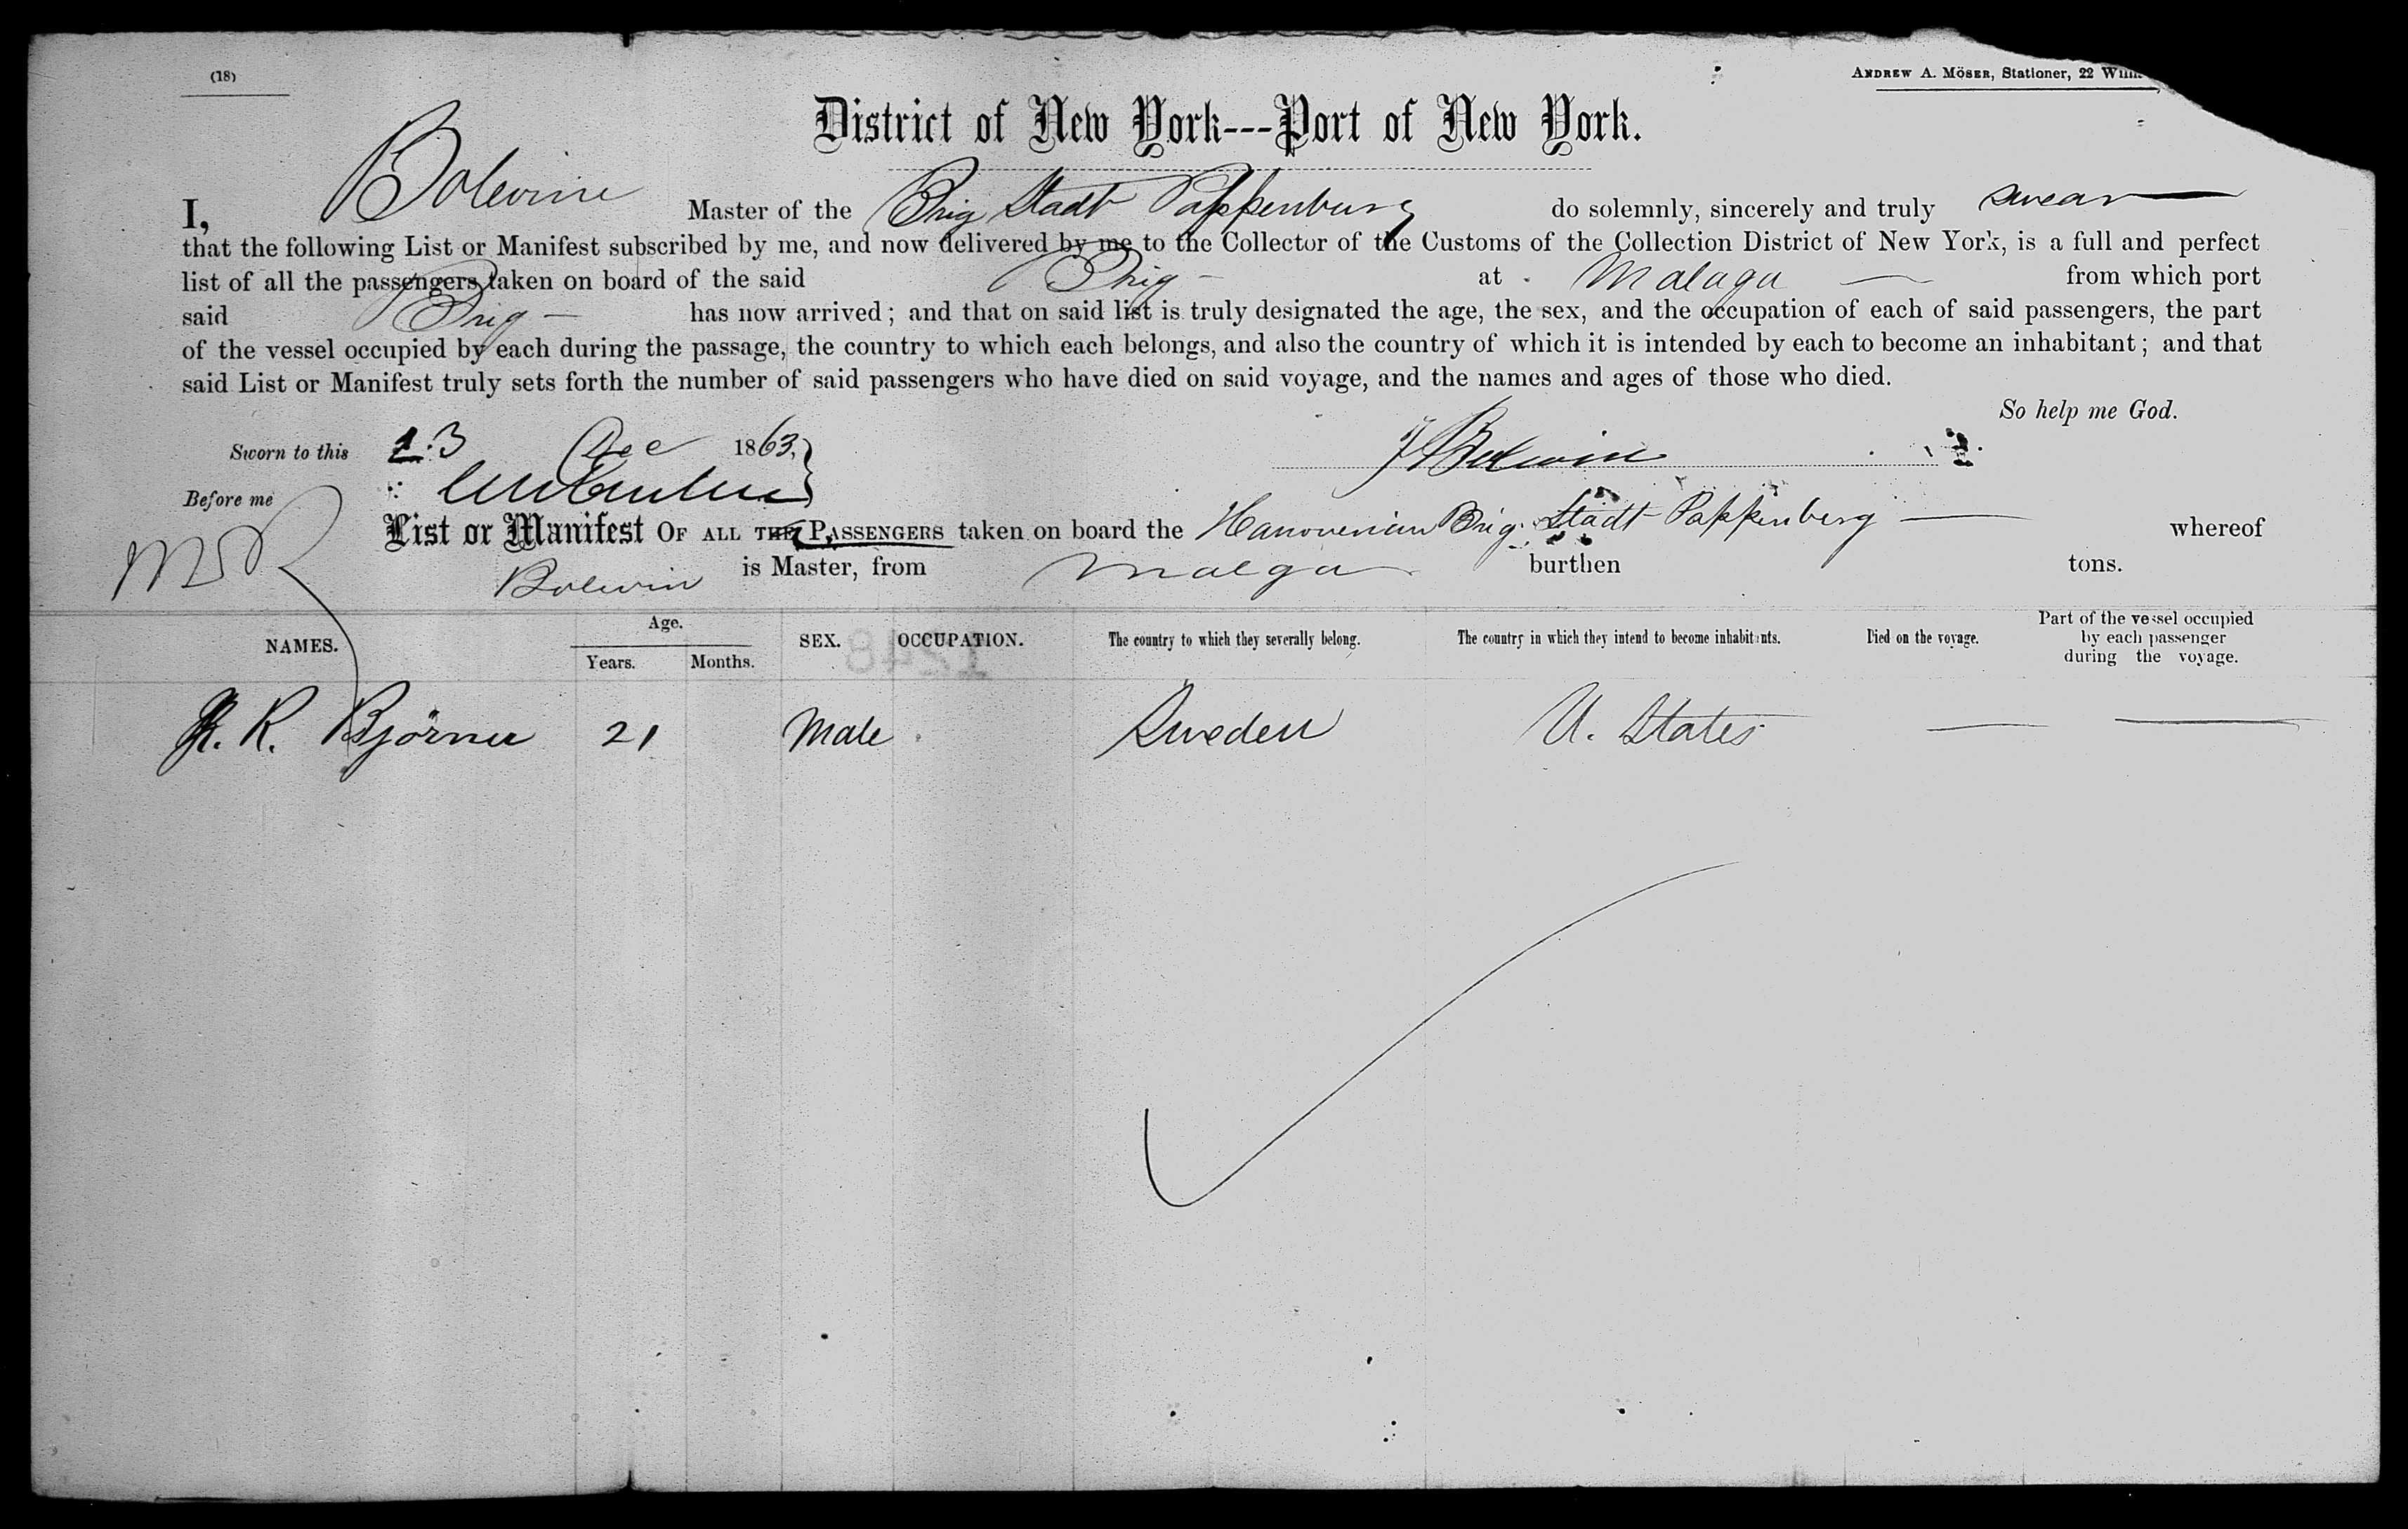 (18)
ANDREW A. MÖSER, Stationer, 22
District of New York---Port of New York.
I, Bolevine Master of the Brig Stadt Pappenburg do solemnly, sincerely and truly swear
that the following List or Manifest subscribed by me, and now delivered by me to the Collector of the Customs of the Collection District of New York, is a full and perfect
list of all the passengers taken on board of the said Brig at Malaga from which port
said Brig has now arrived; and that on said list is truly designated the age, the sex, and the occupation of each of said passengers, the part
of the vessel occupied by each during the passage, the country to which each belongs, and also the country of which it is intended by each to become an inhabitant; and that
said List or Manifest truly sets forth the number of said passengers who have died on said voyage, and the names and ages of those who died.
So help me God.
Sworn to this 23 Dec 1863,
Before me
List or Manifest OF ALL THE PASSENGERS taken on board the Hanoverian Brig Stadt Pappenberg whereof
Bolewin is Master, from Malga burthen tons.
NAMES. Age. Years. Months. SEX. OCCUPATION. The country to which they severally belong. The country in which they intend to become inhabitants. Died on the voyage. Part of the vessel occupied by each passenger during the voyage.
R. Björner 21 Male Sweden U. States